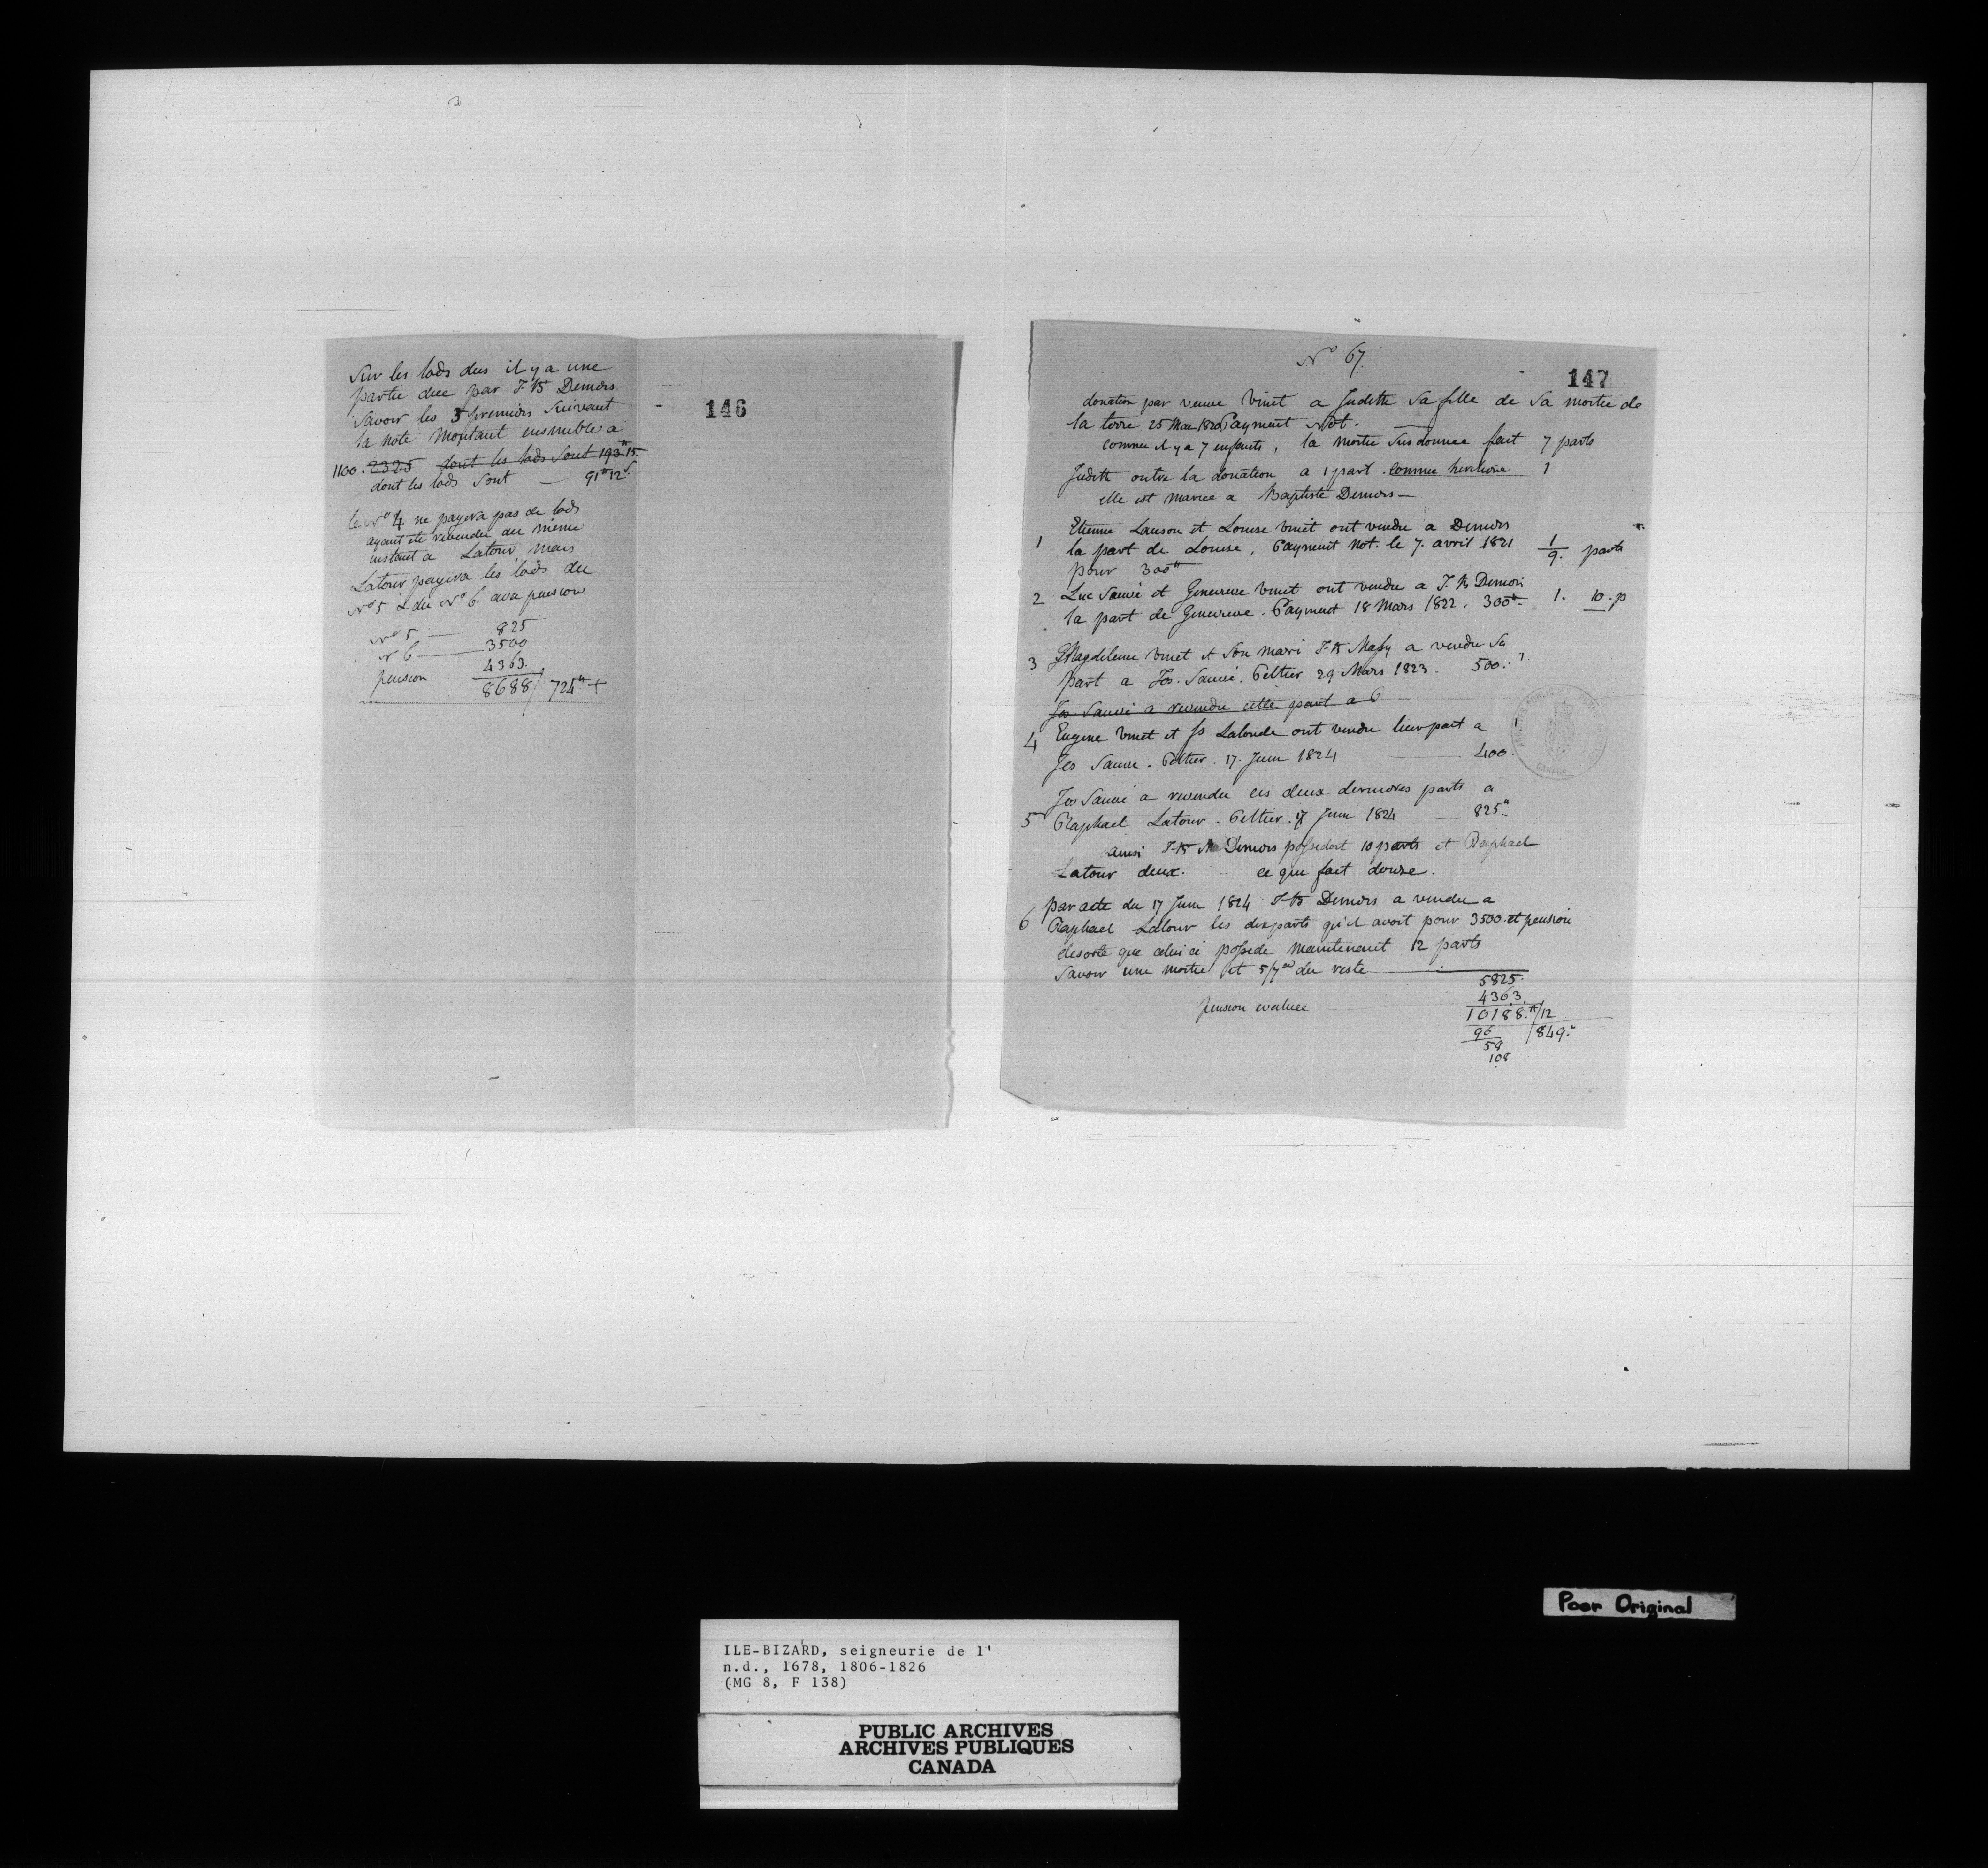 Sur les lods dus il y a une
partie due par J. Bte Demers
Savoir les 3 premiers Suivant
la note Montant ensemble a
1100. 2325 dont les lods Sont 193tt 15
dont les lods Sont — 91tt 12s
le No 4 ne payera pas de lods
ayant ete revendu au même
instant a Latour mais
Latour payera les lods du
No 5 & du No 6 avec pension
No 5 — 825
No 6 — 3500
pension 4363.
8688 / 724tt +
146
No 67.
147
donation par veuve Vinet a Judith Sa fille de Sa moitie de
la terre 25 Mai 1820 Payment Not.
comme il y a 7 enfants, la moitie Susdonnee fait 7 parts
Judith outre la donation a 1 part comme heritiere 1
elle est mariee a Baptiste Demers —
Etienne Lauson et Louise Vinet ont vendu a Demers
1 la part de Louise, Payment Not. le 7. avril 1821 1
pour 300tt 9. parts
2 Luc Sauvé et Genevieve Vinet ont vendu a J. Bte Demers
la part de Genevieve. Payment 18 Mars 1822. 300tt 1. 10. p
3 Magdeleine Vinet et Son mari J. Bte Massy a vendu Sa
part a Jos. Sauvé. Peltier 29 Mars 1823. 500. 1.
Jos. Sauvé a revendu cette part a
4 Eugene Vinet et Js Lalonde ont vendu leur part a 1
Jos Sauvé. Peltier. 17. Juin 1824 — 400.
Jos Sauvé a revendu ces deux dernieres parts a
5 Raphael Latour. Peltier. 17 Juin 1824 — 825tt
ainsi J. Bte Demers possedoit 10 parts et Raphael
Latour deux. ce qui fait douze.
par acte du 17 Juin 1824 J. Bte Demers a vendu a
6 Raphael Latour les dix parts qu'il avoit pour 3500 et pension
desorte que celui ci possede maintenant 12 parts
Savoir une moitie et 5/7es du reste
5825.
pension evaluee 4363.
10188.tt /12
96 / 849.tt
58
108
CANADA
Poor Original
ILE-BIZARD, seigneurie de l'
n.d., 1678, 1806-1826
(MG 8, F 138)
PUBLIC ARCHIVES
ARCHIVES PUBLIQUES
CANADA